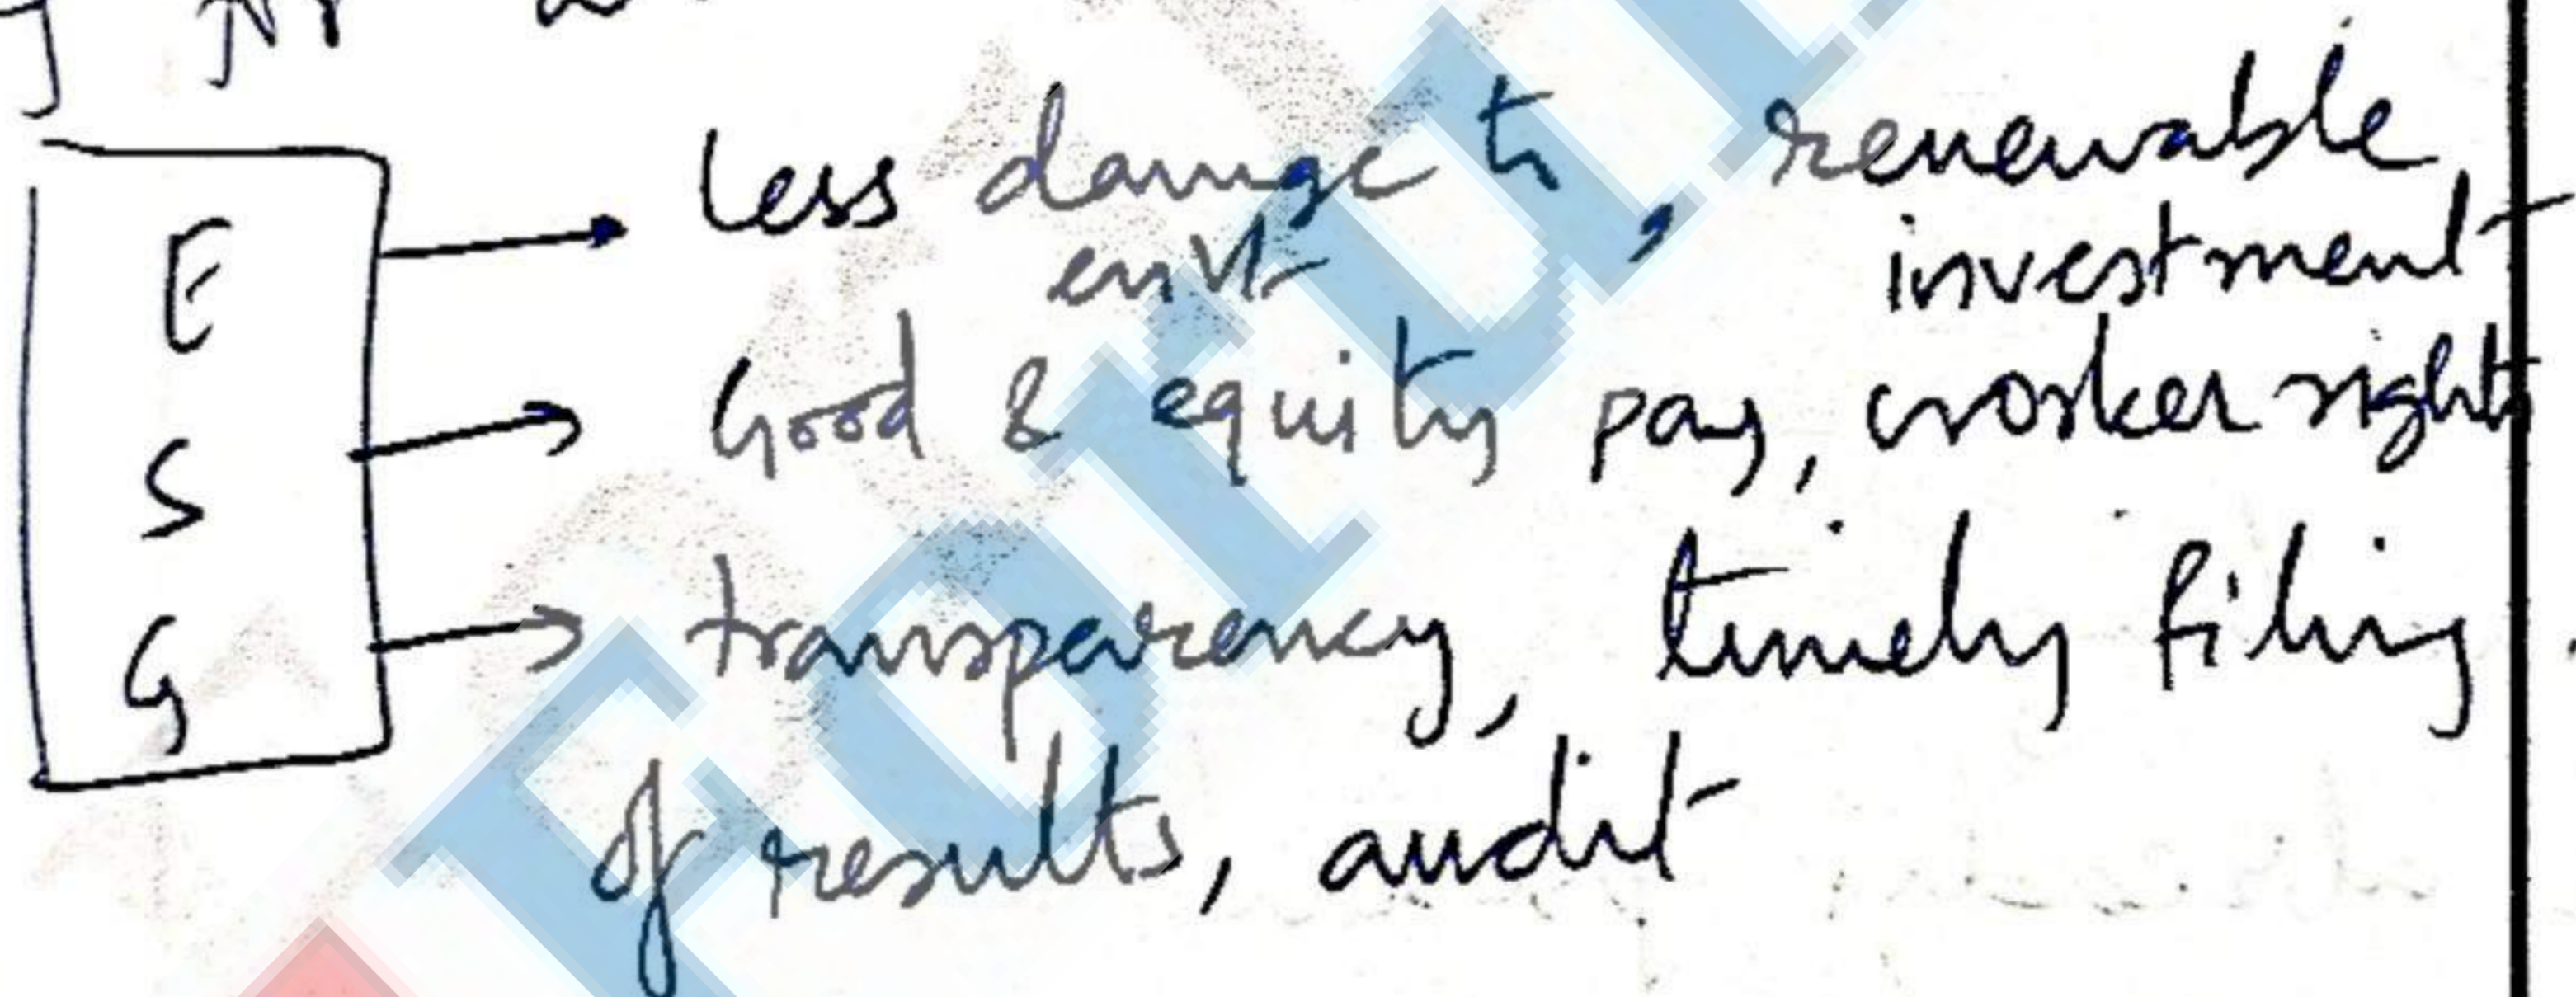 E → less damage to envt, renewable investment
S → Good & equity pay, worker rights
G → transparency, timely filing
of results, audit
Forum